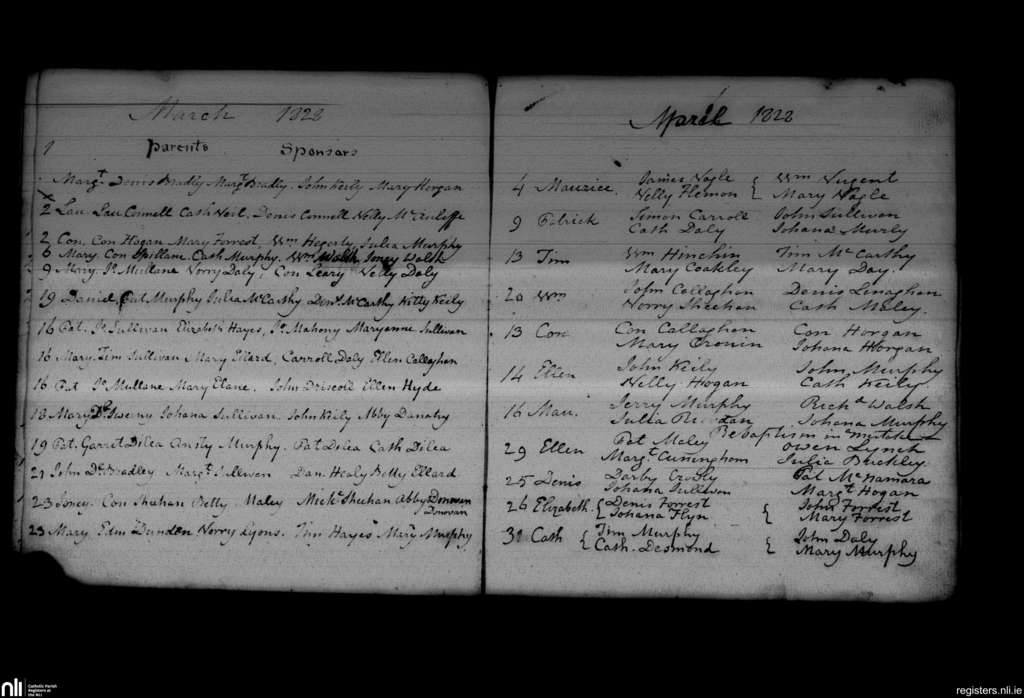 March 1828
1
Parents Sponsors
Margt Denis Bradly Margt Bradly. John Keily Mary Horgan
x
2 Lau Lau Connell Cath Neil. Denis Connell Nelly McAuliffe
2 Con. Con Hogan Mary Forrest. Wm Hegerty Julia Murphy
6 Mary Con Spillane Cath Murphy. Wm Walsh Joney Walsh
9 Mary. Js Mullane Norry Daly, Con Leary Nelly Daly
19 Daniel, Pat Murphy Julia McCarthy Denis McCarthy Kitty Keily
16 Pat. Js Sullivan Elizabeth Hayes, Js Mahony Maryanne Sullivan
16 Mary. Tim Sullivan Mary Ellard, Carroll Daly Ellen Callaghan
16 Pat Js Mullane Mary Elane. John Driscoll Ellen Hyde
18 Mary Dl Sweeny Johana Sullivan. John Keily Abby Danahy
19 Pat. Garret Dilea Ansty Murphy. Pat Dilea Cath Dilea
21 John Dl Bradley Margt Sullivan Dan. Healy Betty Ellard
23 Joney. Con Sheehan Betty Maley Michl Sheehan Abby Donovan
Donovan
23 Mary Edm Dunden Norry Lyons. Tim Hayes Mary Murphy
April 1828
4 Maurice. James Nagle { Wm Nugent
Nelly Flemon Mary Nagle
9 Patrick Simon Carroll John Sullivan
Cath Daly Johana Murly
13 Tim Wm Hinchin Tim McCarthy
Mary Coakley Mary Day.
20 Wm John Callaghan Denis Linaghan
Norry Sheehan Cath Maley.
13 Con Con Callaghan Con Horgan
Mary Cronin Johana Horgan
14 Ellen John Keily John Murphy
Nelly Hogan Cath Keily
16 Mau. Jerry Murphy Richd Walsh
Julia Riordan Johana Murphy
Rebaptism in mistake
29 Ellen Pat Maley Owen Lynch
Margt Cuningham Julia Buckley
25 Denis Darby Crowly Pat McNamara
Johana Sullivan Margt Hogan
26 Elizabeth { Denis Forrest { John Forrest
Johana Flyn Mary Forrest
31 Cath { Tim Murphy { John Daly
Cath. Desmond Mary Murphy
nli Catholic Parish
Registers at
the NLI
registers.nli.ie